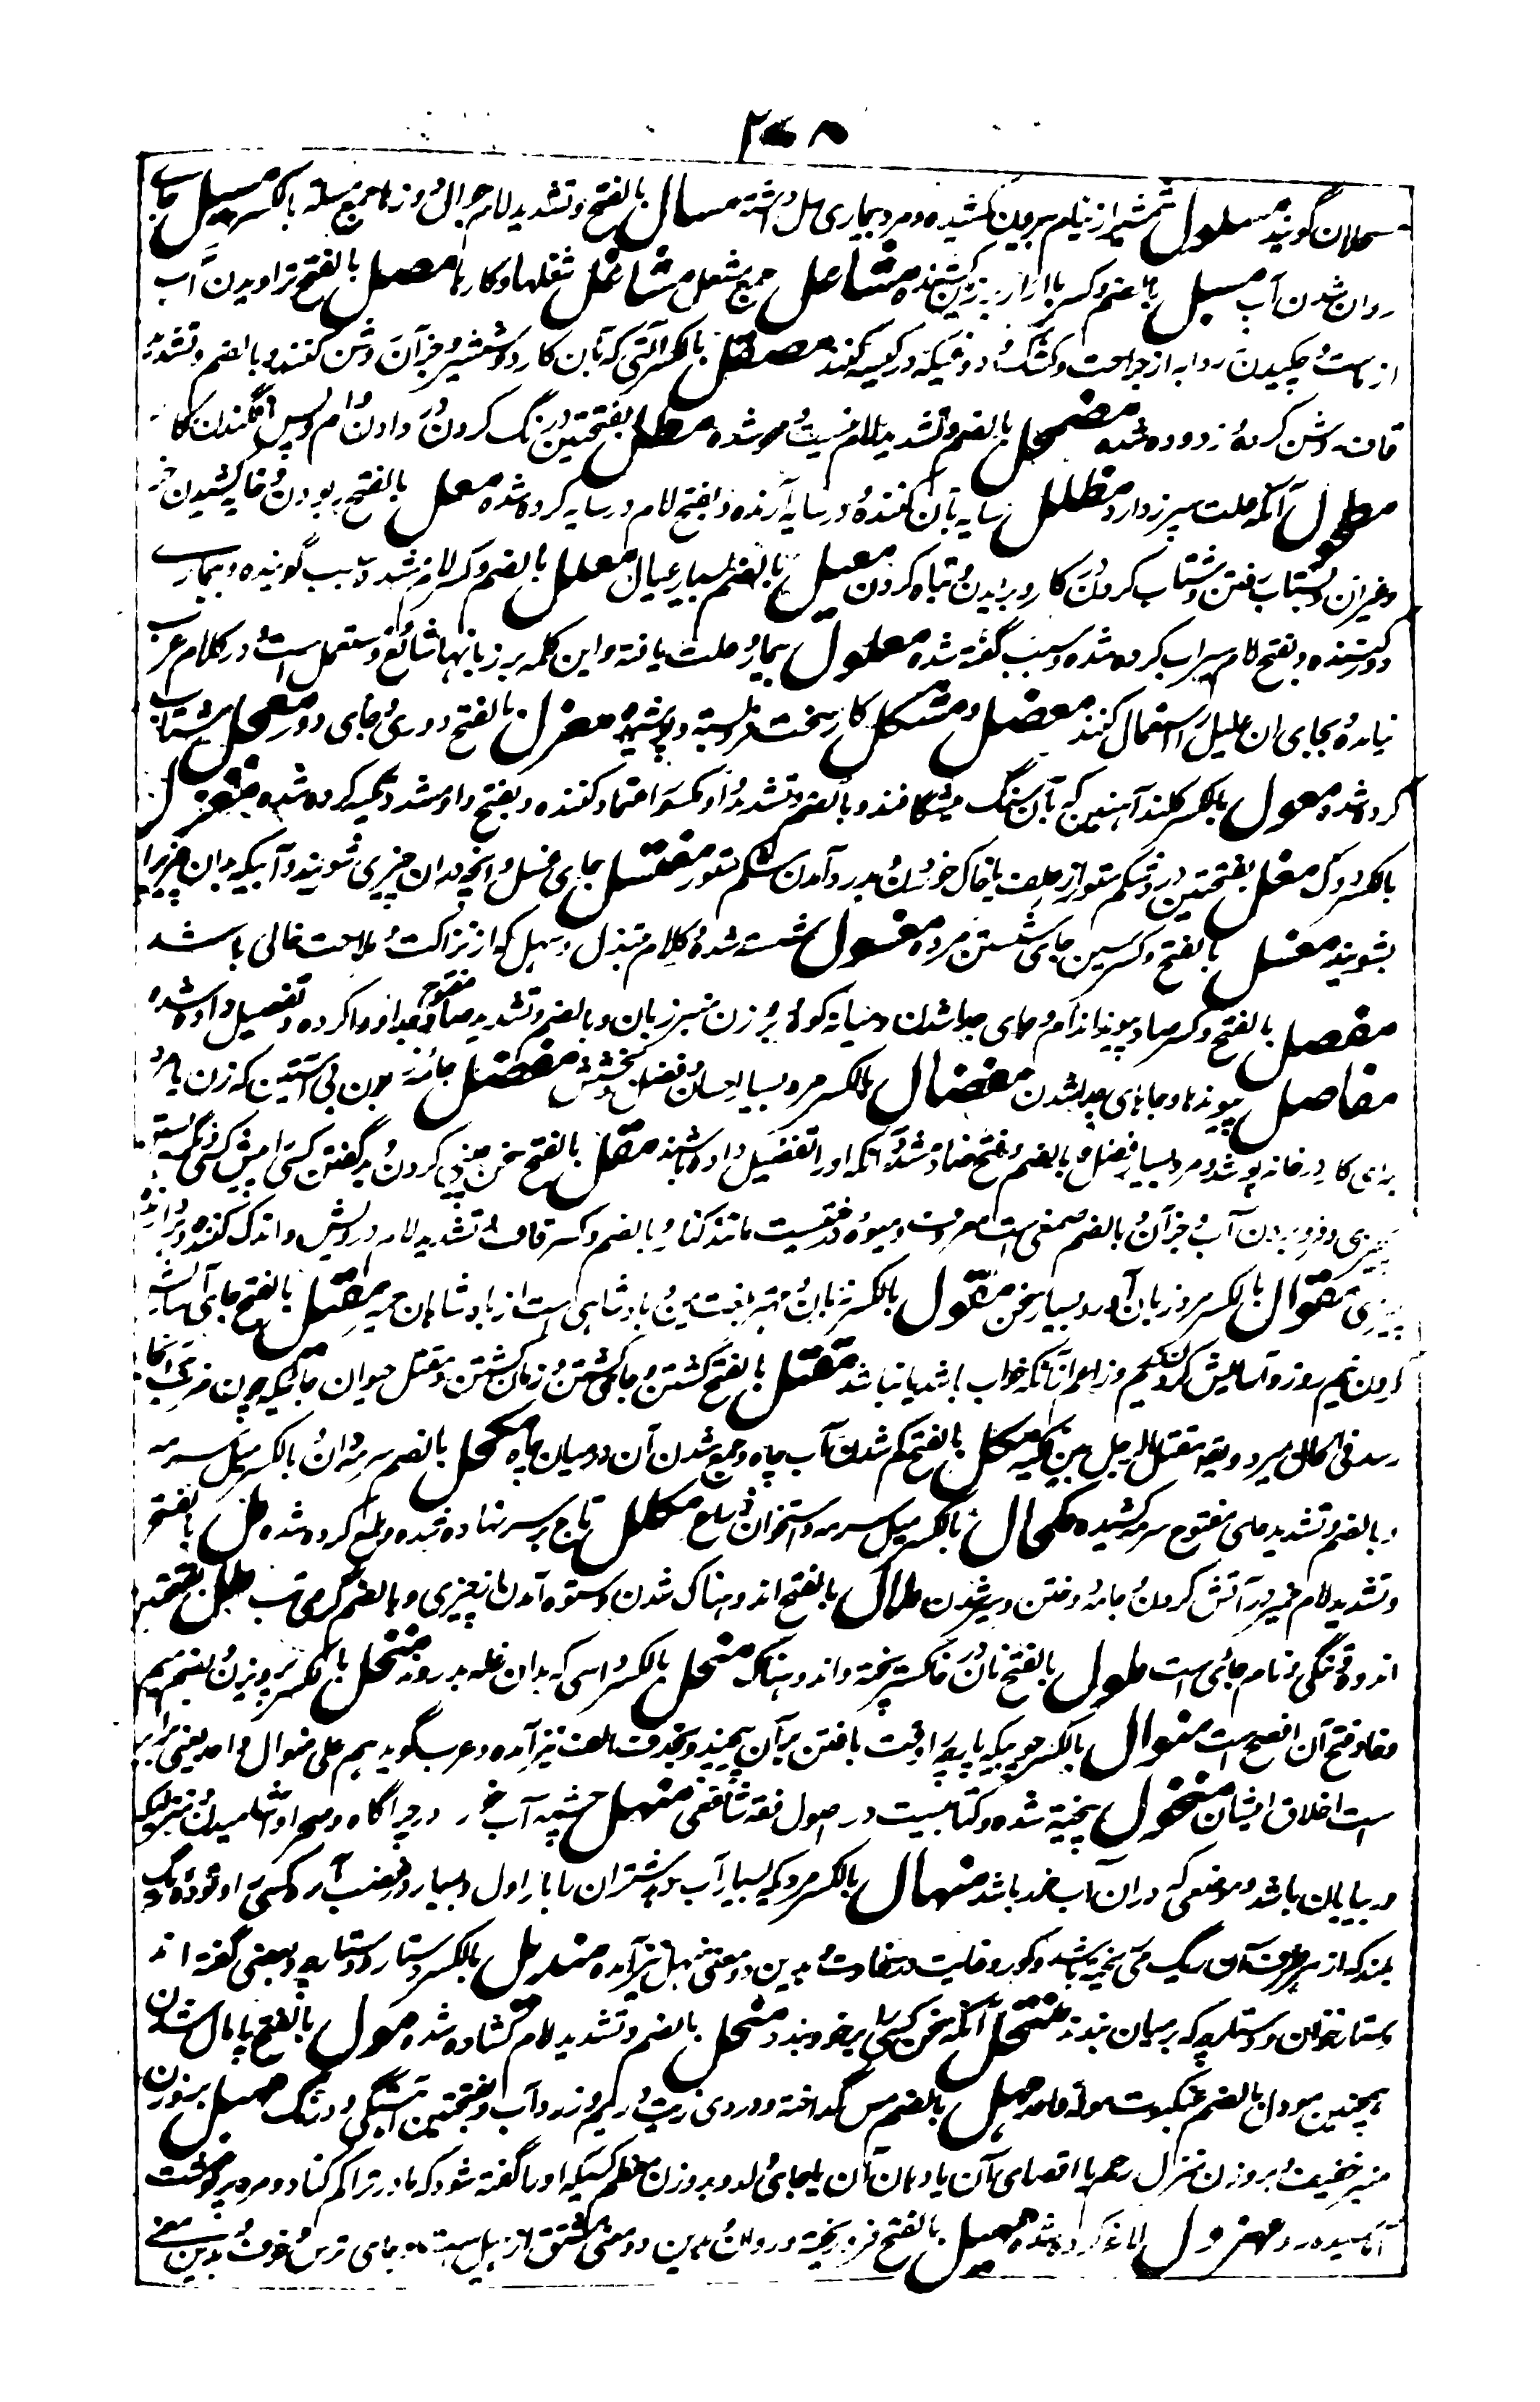 ۲۶۸
گویند مسلول شمشیر از نیام بیرون کشیده و مرد بیماری سل داشته مسال بالفتح و تشدید لام جوال دوزها جمع مسله بالکسر مسیل جای
روان شدن آب مسبل بالضم و کسر با ازار بزمین کشنده مشاعل جمع مشعل مشاغل شغلها و کارها مصل بالفتح تراویدن آب
از ماست و چکیدن زردابه از جراحت و کشک دوغیکه در کیسه کنند مصقل بالکسر آلتی که بآن کارد و شمشیر و جز آن روشن کنند و بالضم و تشدید
قاف روشن کرده زدوده شده مضمحل بالضم و تشدید لام نیست و محو شده مطل بفتحتین درنگ کردن در دادن وام و پس افگندن کار
مطحول آنکه علت سپرز دارد مظلل سایه بان کننده و در سایه آرنده و بفتح لام در سایه کرده شده معل بالفتح ربودن و خایه کشیدن خر
و غیر آن و بشتاب رفتن و شتاب کردن در کار و بریدن و تباه کردن معیل بالضم بسیار عیال معلل بالضم و کسر لام مشدد سبب گوینده و بیمار
و بفتح لام سیراب کرده شده و سبب گفته شده معلول بیمار و علت یافته و این کلمه بر زبانها شائع و مستعمل است و در کلام عرب
نیامده بجای آن علیل استعمال کنند معضل و مشکل کار سخت فروبسته و پوشیده معزل بالفتح دوری و جای دور معجل شتاب
کرده شده معول بالکسر کلند آهنین که بآن سنگ شکافند و بالضم و تشدید واو مکسور اعتماد کننده و بفتح واو مشدد تکیه کرده شده مغزل
بالکسر دوک مغل بفتحتین درد شکم ستور از علف با خاک خوردن و بدرد آمدن شکم ستور مغتسل جای غسل و آنچه دران چیزی شویند و آبیکه بدان چیز را
بشویند مغسل بالفتح و کسر سین جای شستن مرده مغسول شسته شده و کلام مبتذل و سهل که از نزاکت و ملاحت خالی باشد
مفصل بالفتح و کسر صاد پیوند اندام و جای جدا شدن و میانه کوه و بر وزن منبر زبان و بالضم و تشدید صاد مفتوح جدا و وا کرده و تفصیل داده شده
مفاصل پیوندها و جاهای جدا شدن مفضال بالکسر مرد بسیار احسان و فضل و بخشش مفضل جامه چون بی آستین که زن یا مرد
برای کار در خانه پوشد و مرد بسیار فضل و بالضم و فتح ضاد مشدد آنکه او را تفضیل داده باشند مقل بالفتح
چیزی و فرو بردن در آب و جز آن و بالضم صمغی است معروف و میوه درختیست مانند کنار و بالضم و کسر قاف و تشدید لام درویش و اندک کننده
چیزی مقوال بالکسر مرد زبان آور و بسیار سخن مقول بالکسر زبان و مهتر بلغت یمن و پادشاهی است از پادشاهان حمیر مقیل بالفتح جای آسایش
نیم روز و آسایش کردن نیم روز اعم از آنکه خواب باشد یا نباشد مقتل بالفتح کشتن و جای کشتن و زمان کشتن و مقتل حیوان جائیکه چون ضرب آنجا
رسد فی الحال میرد و یقه مقتل الرجل بین فکیه مکل بالفتح کم شدن آب چاه و جمع شدن آن در میان چاه مکحل بالضم سرمه دان و بالکسر میل سرمه
و بالضم و تشدید حای مفتوح سرمه کشیده مکحال بالکسر میل سرمه و استخوان ذراع مکلل تاج بر سر نهاده شده و ملمع کرده شده مل بالفتح
و تشدید لام خمیر در آتش کردن و جامه دوختن و سیر شدن ملال بالفتح اندوهناک شدن و ستوه آمدن از چیزی و بالضم گرمی تب ملل بفتحتین
اندوهگینگی و نام جائی است ملول بالفتح نان در خاکستر پخته و اندوهناک منجل بالکسر داسی که بدان غله بدروند منخل بالکسر پرویزن و بضم میم
و خا و فتح آن افصح است منوال بالکسر چوبیکه پارچه را وقت بافتن بر آن پیچند و بحذف الف نیز آمده و عرب گوید هم علی منوال واحد یعنی برابر
است اخلاق ایشان منخول پخته شده و کتابیست در اصول فقه شافعی منهل چشمه آب خور در چراگاه و صحرا و
در بیابان باشد و موضعی که دران آب خور باشد منهال بالکسر مردیکه بسیار آب دهد شتران را بار اول و بسیار در غضب آرد کسی را و توده ریگ
بلند که از هر طرف آن ریگ می ریخته باشد و گور و غایت سخاوت و بدین دو معنی منهل نیز آمده مندیل بالکسر دستار و دستارچه و بعضی گفته اند
دستار خوان و دستارچه که بر میان بندند منتحل آنکه سخن کسی را بر خود بندد منحل بالضم و تشدید لام کشاده شده مول بالفتح پامال شدن
همچنین مودل بالضم عنکبوت مهل بالضم مس گداخته و دردی زیت و ریم و زرداب و بفتحتین آهستگی و درنگ مهبل بر وزن
منبر خفیف و بر وزن منزل رحم یا اقصای آن یا دهان آن یا جای ولد و بروزن معظم کسیکه او را گفته شود که مادر ترا گم کناد و مرد پر گوشت
آماسیده رو مهزول لاغر کرده شده مهیل بالفتح فرو ریخته و روان و بدین دو معنی مشتق از هیل است و جای ترس و خوف و بدین معنی